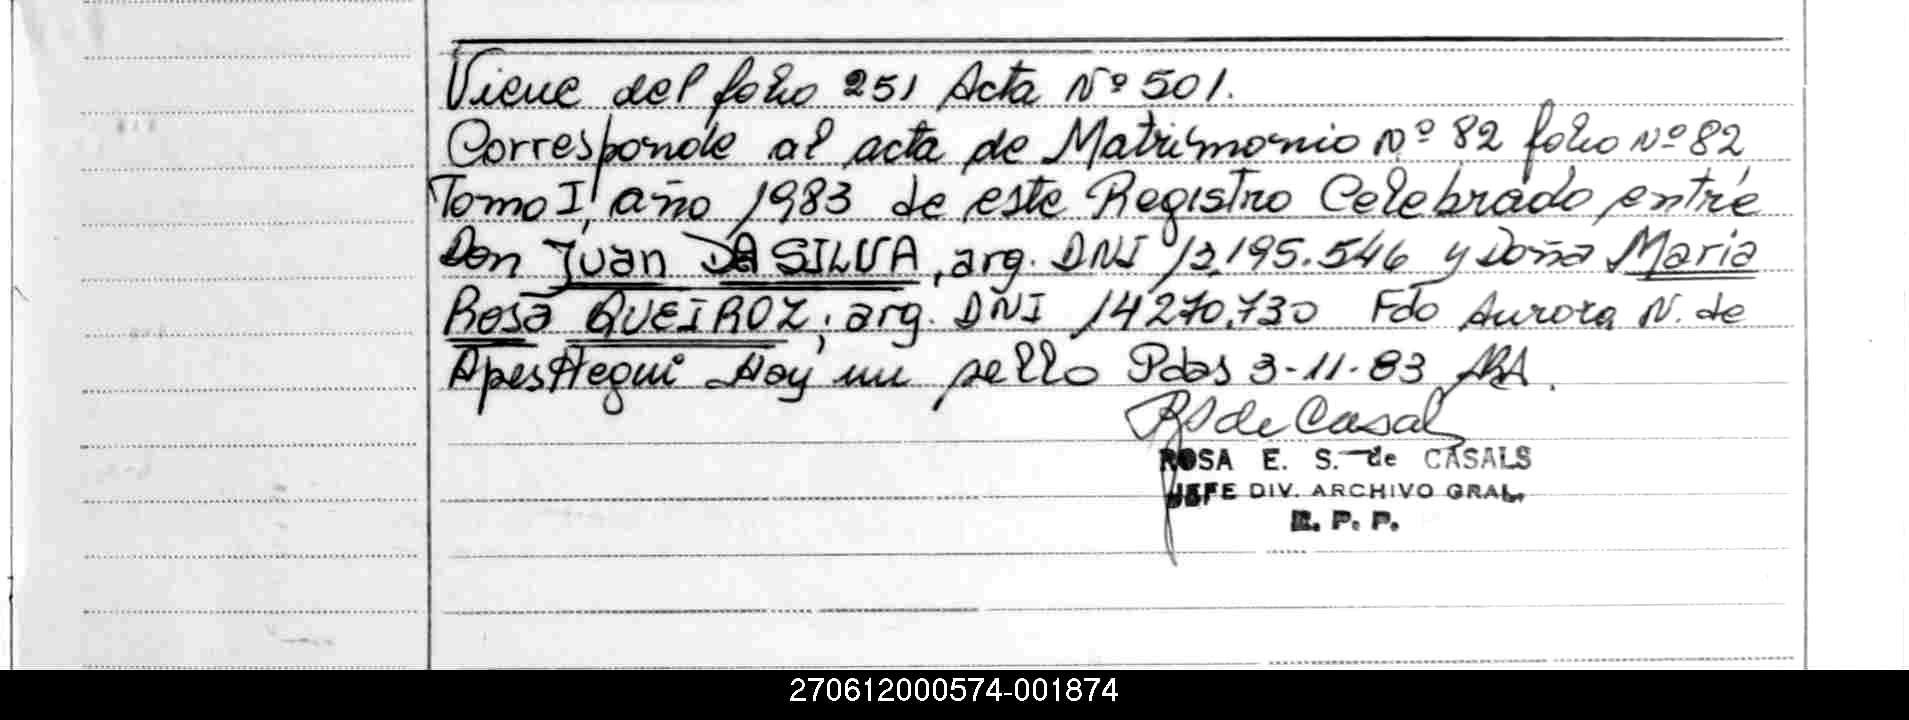 Viene del folio 251 Acta Nº 501.
Corresponde al acta de Matrimonio Nº 82 folio Nº 82
Tomo I, año 1983 de este Registro Celebrado entre
Don Juan DA SILVA, arg. DNI 13.195.546 y Doña Maria
Rosa QUEIROZ, arg. DNI 14270.730 Fdo Aurora N. de
Apesttegui Hay un sello Pdas 3-11-83
RS de Casal
ROSA E. S. de CASALS
JEFE DIV. ARCHIVO GRAL.
R. P. P.
270612000574-001874